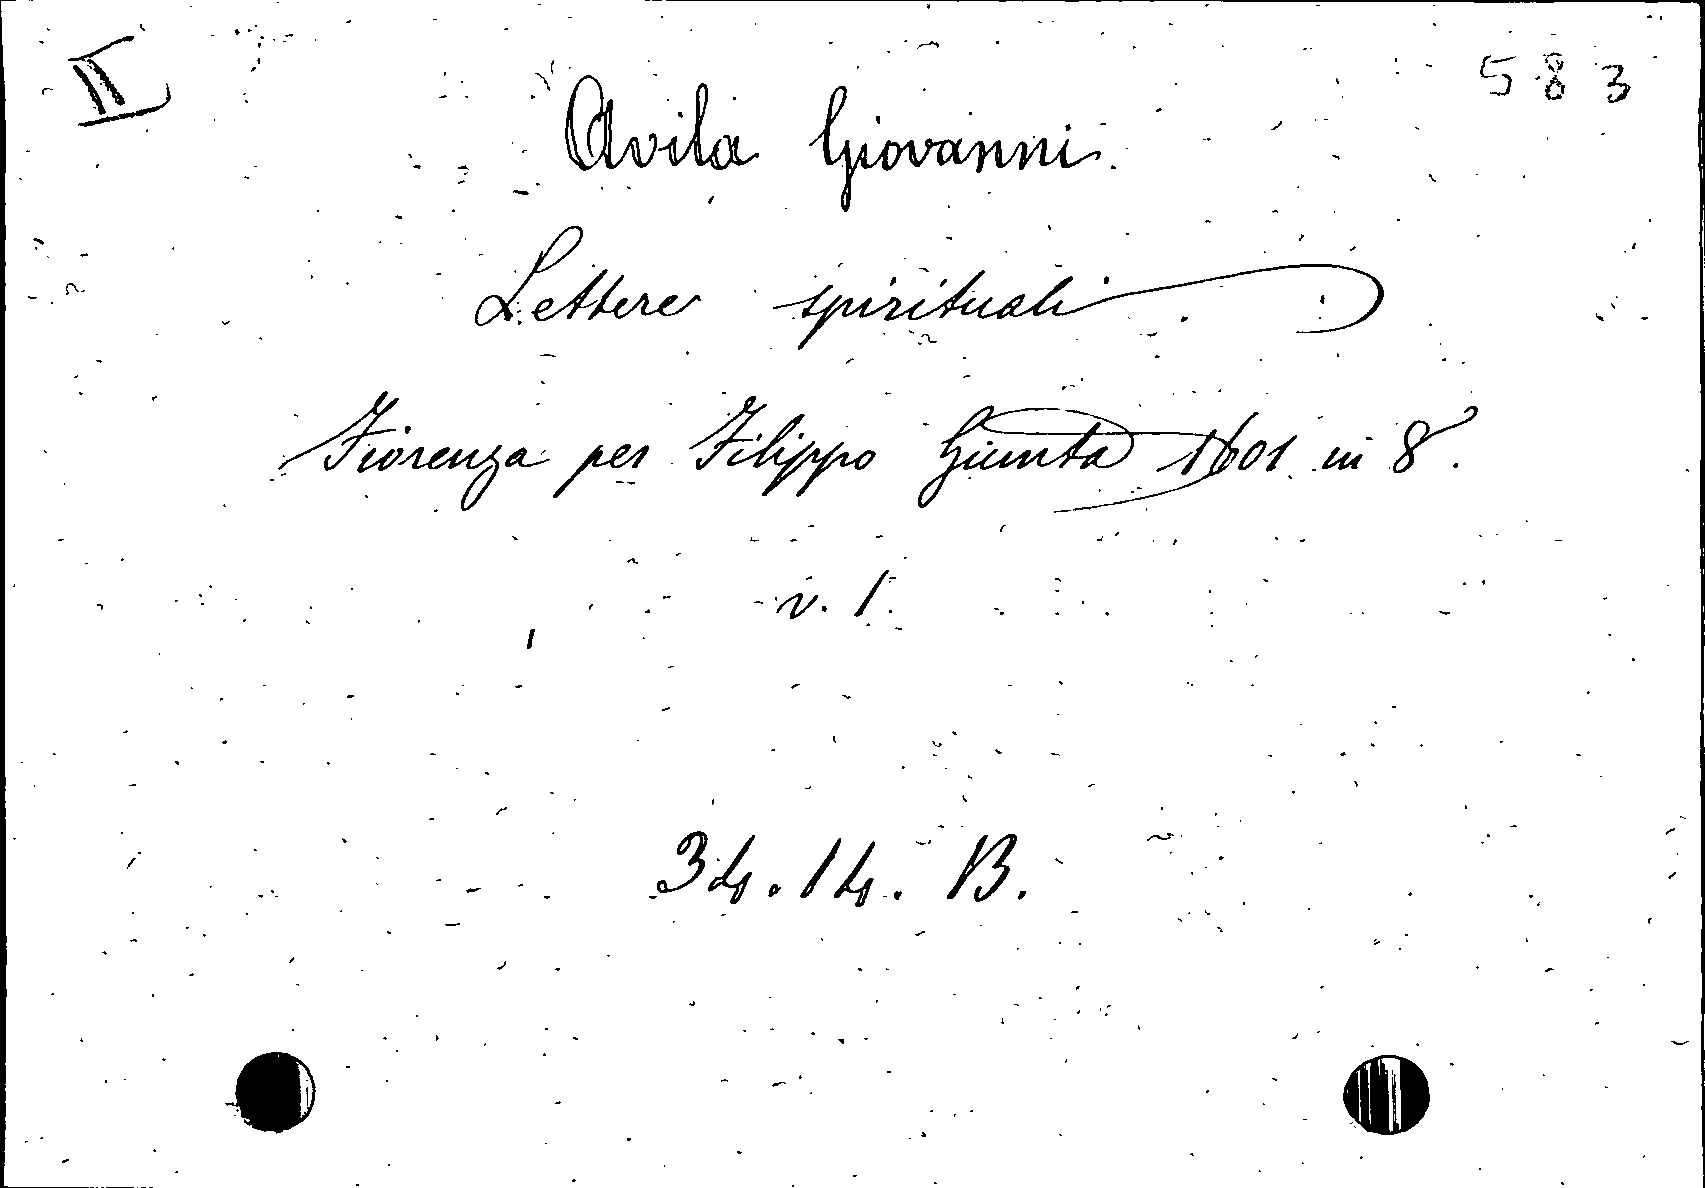 II
583
Avila Giovanni.
Lettere spirituali
Fiorenza per Filippo Giunta 1601 in 8.
v. 1.
34. 14. B.